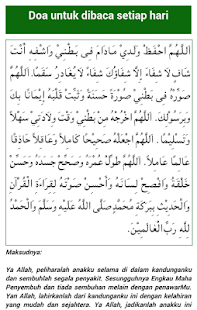 Doa untuk dibaca setiap hari
اَللّٰهُمَّ احْفَظْ وَلَدِيْ مَادَامَ فِى بَطْنِيْ وَاشْفِهِ أَنْتَ
شَافٍ لَا شِفَاءَ إِلَّا شِفَاؤُكَ شِفَاءً لَا يُغَادِرُ سَقَمًا. اَللّٰهُمَّ
صَوِّرْهُ فِى بَطْنِيْ صُوْرَةً حَسَنَةً وَثَبِّتْ قَلْبَهُ إِيْمَانًا بِكَ
وَبِرَسُوْلِكَ. اَللّٰهُمَّ اَخْرِجْهُ مِنْ بَطْنِيْ وَقْتَ وِلَادَتِي سَهْلًا
وَتَسْلِيْمًا. اَللّٰهُمَّ اجْعَلْهُ صَحِيْحًا كَامِلًا وَعَاقِلًا حَاذِقًا
عَالِمًا عَامِلًا. اَللّٰهُمَّ طَوِّلْ عُمْرَهُ وَصَحِّحْ جَسَدَهُ وَحَسِّنْ
خُلُقَهُ وَافْصَحْ لِسَانَهُ وَأَحْسِنْ صَوْتَهُ لِقِرَاءَةِ الْقُرْآنِ
وَالْحَدِيْثِ بِبَرَكَةِ مُحَمَّدٍ صَلَّى اللهُ عَلَيْهِ وَسَلَّمَ وَالْحَمْدُ
لِلّٰهِ رَبِّ الْعَالَمِيْنَ.
Maksudnya:
Ya Allah, peliharalah anakku selama di dalam kandunganku
dan sembuhlah segala penyakit. Sesungguhnya Engkau Maha
Penyembuh dan tiada sembuhan melain dengan penawarMu.
Yan Allah, lahirkanlah dari kandunganku ini dengan kelahiran
yang mudah dan sejahtera. Ya Allah, jadikanlah anakku ini